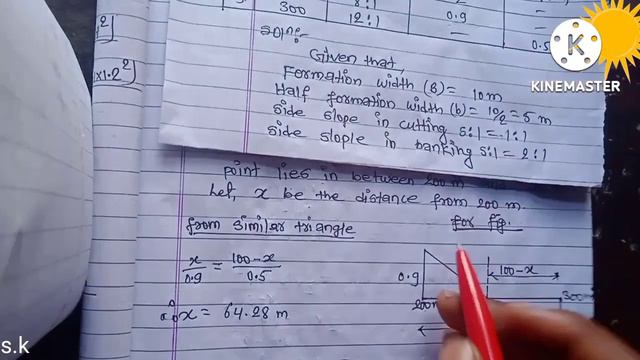 300
12:1
0.9
0.5
×1.2²)
KINEMASTER
Soln:
Given that,
Formation width (B) = 10 m
Half formation width (b) = 10/2 = 5 m
side slope in cutting s:1 = 1:1
side slople in banking s:1 = 2:1
point lies in between 200 m
Let, x be the distance from 200 m.
from similar triangle
for fig.
x/0.9 = 100-x/0.5
x = 64.28 m
0.9
100-x
200m
300
s.k